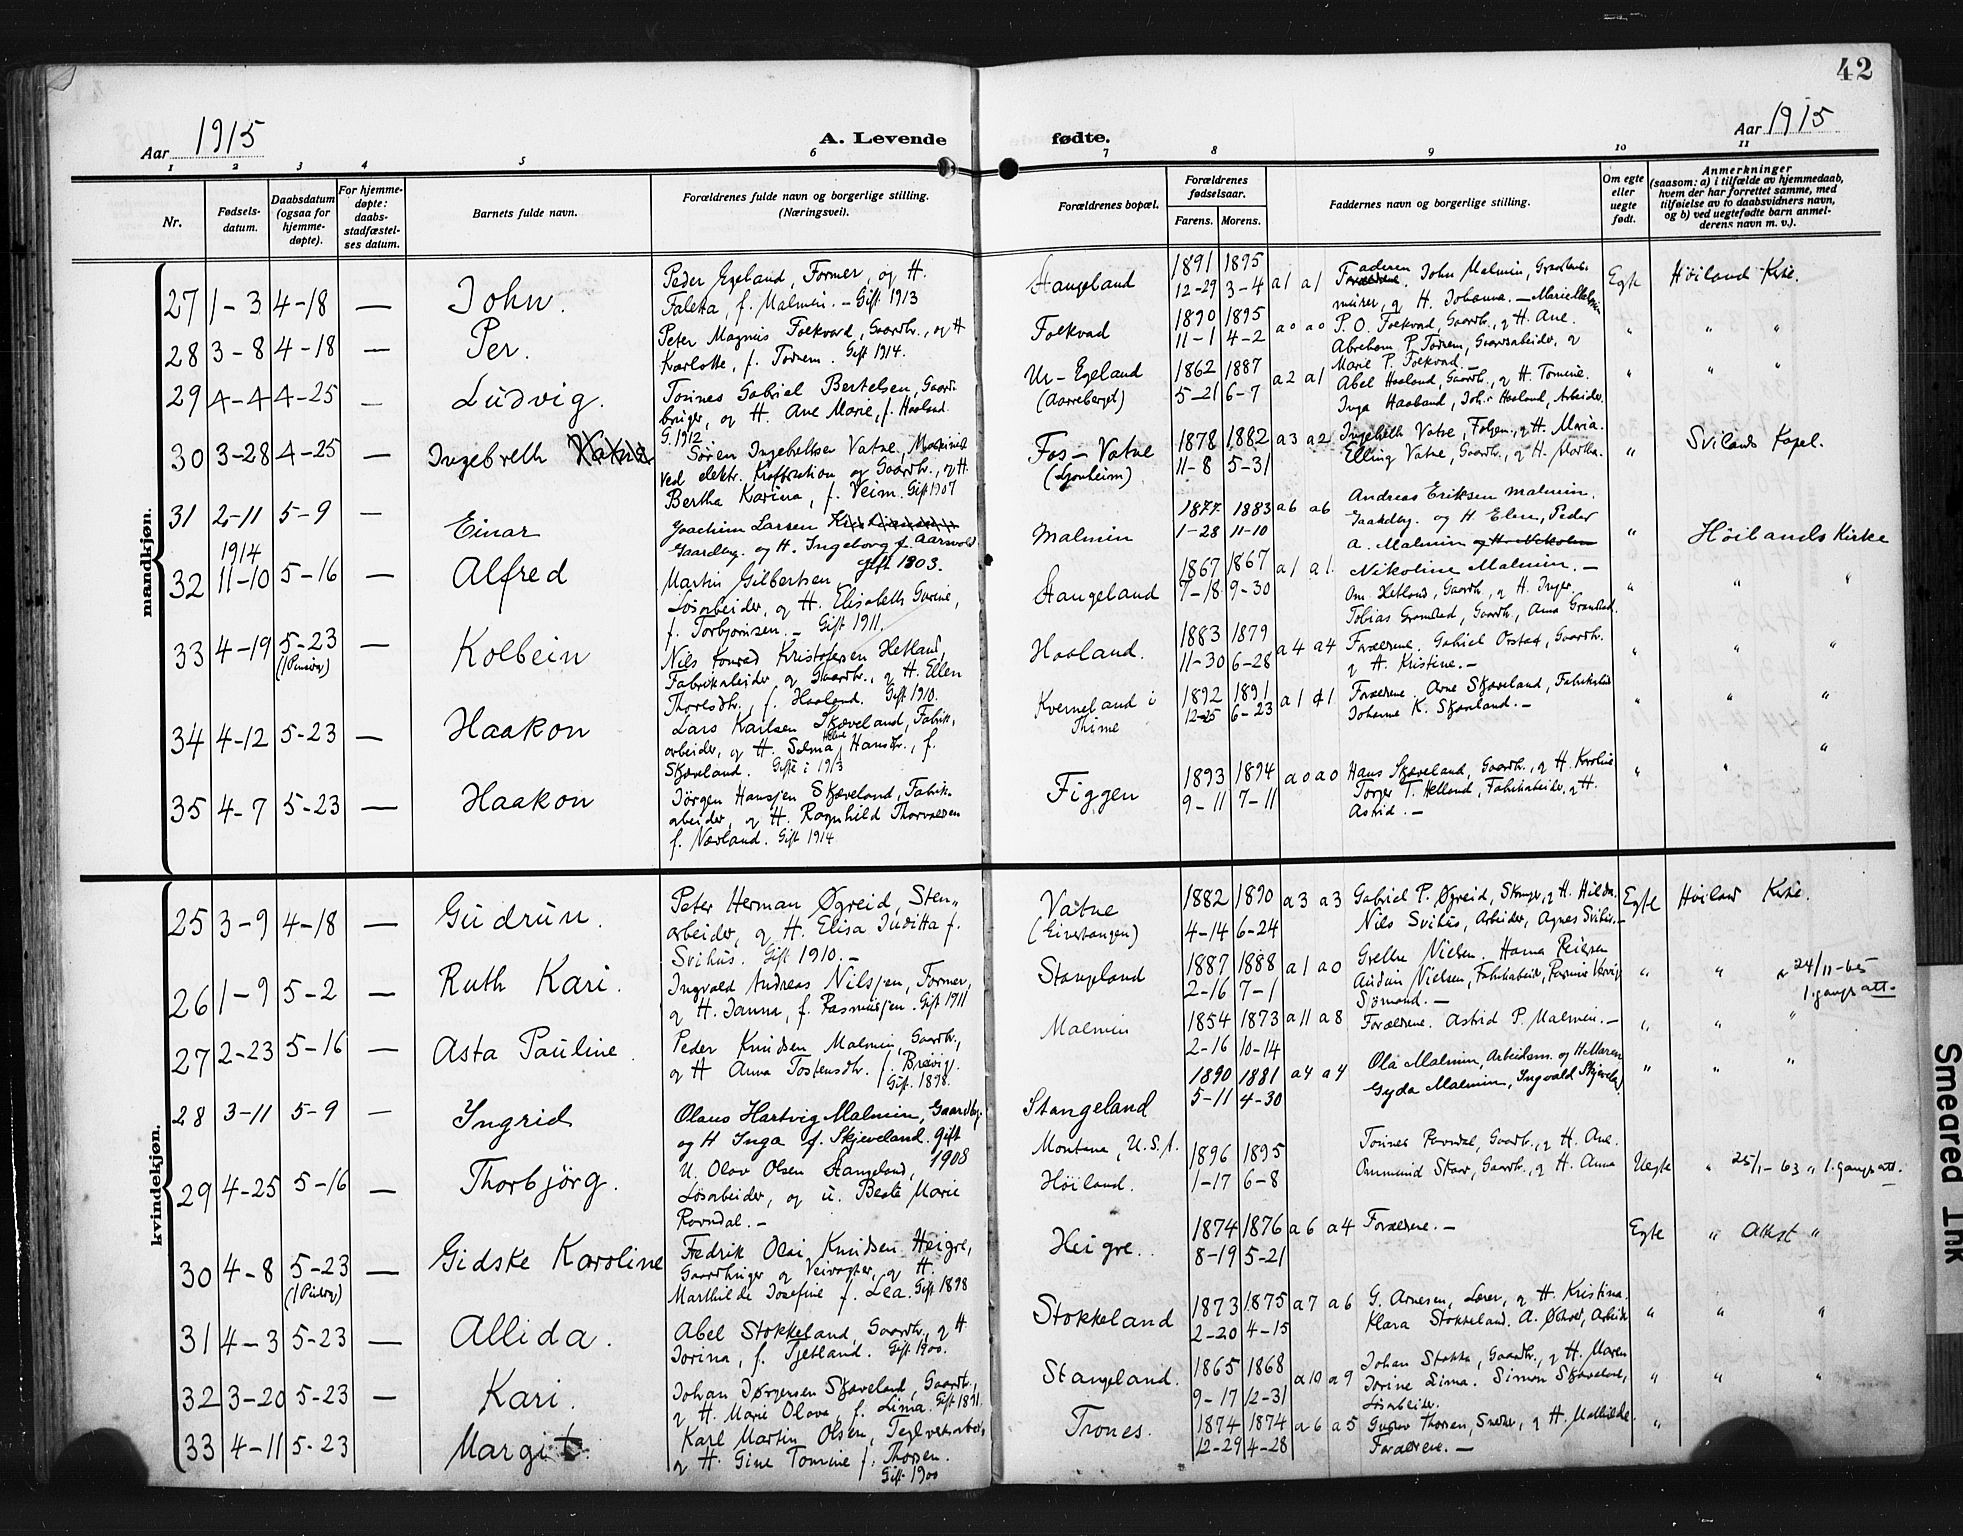 42
Aar 1915
A. Levende fødte.
Aar 1915
1 2 3 4 5 6 7 8 9 10 11
Nr.
Fødsels-
datum.
Daabsdatum
(ogsaa for
hjemme-
døpte).
For hjemme-
døpte:
daabs-
stadfæstel-
ses datum.
Barnets fulde navn.
Forældrenes fulde navn og borgerlige stilling.
(Næringsvei).
Forældrenes bopæl.
Forældrenes
fødselsaar.
Farens. Morens.
Faddernes navn og borgerlige stilling.
Om egte
eller
uegte
født.
Anmerkninger
(saasom: a) i tilfælde av hjemmedaab,
hvem der har forrettet samme, med
tilføielse av to daabsvidners navn,
og b) ved uegtefødte barn anmel-
derens navn m. v.).
mandkjøn.
27 1-3 4-18 — John.
Peder Egeland, Former, og H.
Faleka, f. Malmin. — Gift 1913
Stangeland
1891 1895
12-29 3-4 a1 a1
John Malmin,
og H. Johanna. —
Egte Høiland Kirke.
28 3-8 4-18 — Per.
Peter Magnus Folkvord, Gaardbr., og H
Karlotte, f. Todnem. Gift 1914.
Folkvord
1890 1895
11-1 4-2 a0 a0
P. O. Folkvord, Gaardbr., og H. Ane.
Abraham P. Todnem, Gaardsarbeider, og
Marie P. Folkvord. —
" " "
29 4-4 4-25 — Ludvig.
Tønnes Gabriel Bertelsen, Gaard-
bruger, og H. Ane Marie, f. Haaland.
G. 1912
Ur-Egeland
(Aarreberget)
1862 1887
5-21 6-7 a2 a1
Abel Haaland, Gaardbr., og H. Tomine.
Inga Haaland, Joh. Haaland, Arbeider.
" " "
30 3-28 4-25 — Ingebreth Vatne
Søren Ingebrethsen Vatne, Maskinist
ved elektr. Kraftstation og Gaardbr., og H.
Bertha Karina, f. Veim. Gift 1907
Fos-Vatne
1878 1882
11-8 5-31 a3 a2
Ingebreth Vatne, Følgem., og H. Maria.
Elling Vatne, Gaardbr., og H. Martha.
" Svilands Kapel.
31 2-11 5-9 — Einar
Joachim Larsen
Gaardbg. og H. Ingeborg f. Aarsvold
gift 1903.
Malmin
1877 1883
1-28 11-10 a6 a6
Andreas Eriksen Malmin.
Gaardbg. og H Elen, Peder
A. Malmin og H. Nikoline
Nikoline Malmin. —
" Höilands Kirke
32 1914
11-10 5-16 — Alfred
Martin Gilbertsen,
Løsarbeider, og H. Elisabeth Gurine,
f. Torbjørnsen. — Gift 1911.
Stangeland
1867 1867
7-18 9-30 a1 a1.
Om. Hetland, Gaardbr., og H. Inger.
Tobias Gramstad, Gaardbr., Anna Gramstad.
" " "
33 4-19 5-23 — Kolbein
Nils Konrad Kristofersen Hetland,
Fabrikarbeider og Gaardbr., og H. Ellen
Thoresdtr., f. Haaland. Gift 1910.
Haaland.
1883 1879
11-30 6-28 a4 a4
Forældrene. Gabriel Orstad, Gaardbr.
og H. Kristine. —
" " "
34 4-12 5-23 — Haakon
Lars Karlsen Skjæveland, Fabrik-
arbeider, og H. Selma Hansdtr., f.
Skjæveland. Gifte i 1913
Kverneland i
Thime
1892 1891
12-25 6-23 a1 a1
Forældrene. Arne Skjæveland, Fabrikarbd
Johanne K. Skjæveland. —
" " "
35 4-7 5-23 — Haakon
Jörgen Hansjen Skjæveland, Fabrik-
arbeider, og H. Ragnhild Thorvaldsen
f. Nævland. Gift 1914
Figgen
1893 1894
9-11 7-11 a0 a0
Hans Skjæveland, Gaardbr., og H. Karoline
Torger T. Helland, Fabrikarbeider, og H.
Astrid. —
" " "
kvindekjøn.
25 3-9 4-18 — Gudrun.
Peter Herman Øgreid, Sten-
arbeider, og H. Elisa Juditta f.
Svihus. Gift 1910. —
Vatne
1882 1890
4-14 6-24 a3 a3
Gabriel P. Øgreid, og H. Hilda.
Nils Svihus, Arbeider, Agnes Svihus. —
Egte Höiland Kirke.
26 1-9 5-2 — Ruth Kari.
Ingvald Andreas Nilsjen, Former,
og H. Janna, f. Rasmusjen. Gift 1911
Stangeland
1887 1888
2-16 7-1 a1 a0
Grethe Nielsen. Hanna Reiersen
Audun Nielsen, Fabrikarbeid,
Sjømand. —
" " " 24/11-65
1. gangs att.
27 2-23 5-16 — Asta Pauline.
Peder Knudsen Malmin, Gaardbr.,
og H Anna Tostensdtr. f. Breivig.
Gift. 1898.
Malmin
1854 1873
2-16 10-14 a11 a8
Forældrene. Astrid P. Malmin. —
" " "
28 3-11 5-9 — Ingrid
Olaus Hartvig Malmin, Gaardbg.
og H Inga f. Skjeveland. Gift
1908
Stangeland
1890 1881
5-11 4-30 a4 a4
Ola Malmin, Arbeidsm. og H Maren
Gyda Malmin, Ingvald Skjevelad
" " "
29 4-25 5-16 — Thorbjörg.
U. Olav Olsen Stangeland,
Løsarbeider, og U. Beate Marie
Ravndal. —
Montana, U.S.A.
Höiland.
1896 1895
1-17 6-8
Tønnes Ravndal, Gaardbr., og H. Ane.
Ommund Stav, Gaardbr., og H. Anna
Uegte " 25/1-63 " 1. gangs att.
30 4-8 5-23 — Gidske Karoline
Fredrik Olai Knudsen Heigre,
Gaardbruger og Veivogter, og H.
Marthilde Josefine f. Lea. Gift 1898
Heigre.
1874 1876
8-19 5-21 a6 a4
Forældrene. —
Egte " Attest "
31 4-3 5-23 — Allida.
Abel Stokkeland, Gaardbr., og H
Jorina, f. Tjetland. Gift 1900.
Stokkeland
1873 1875
2-20 4-15 a7 a6
G. Arnesen, Lærer, og H. Kristina.
Klara Stokkeland.
" " "
32 3-20 5-23 — Kari.
Johan Jørgensen Skjæveland, Gaardbr.,
og H. Marie Olava, f. Lima. Gift 1891.
Stangeland.
1865 1868
9-17 12-31 a10 a9
Johan Stokka, Gaardbr., og H. Maren
Jorine Lima. Simon Skjæveland,
Løsarbeider.
" " "
33 4-11 5-23 Margit.
Karl Martin Olsen, Teglverksarbeid.,
og H. Gine Tomine f. Thorsen.
Gift 1900
Trones.
1874 1874
12-29 4-28 a6 a5
Gustav Thorsen, Snedker, og H. Mathilde.
Forældrene. —
"
Smeared Ink